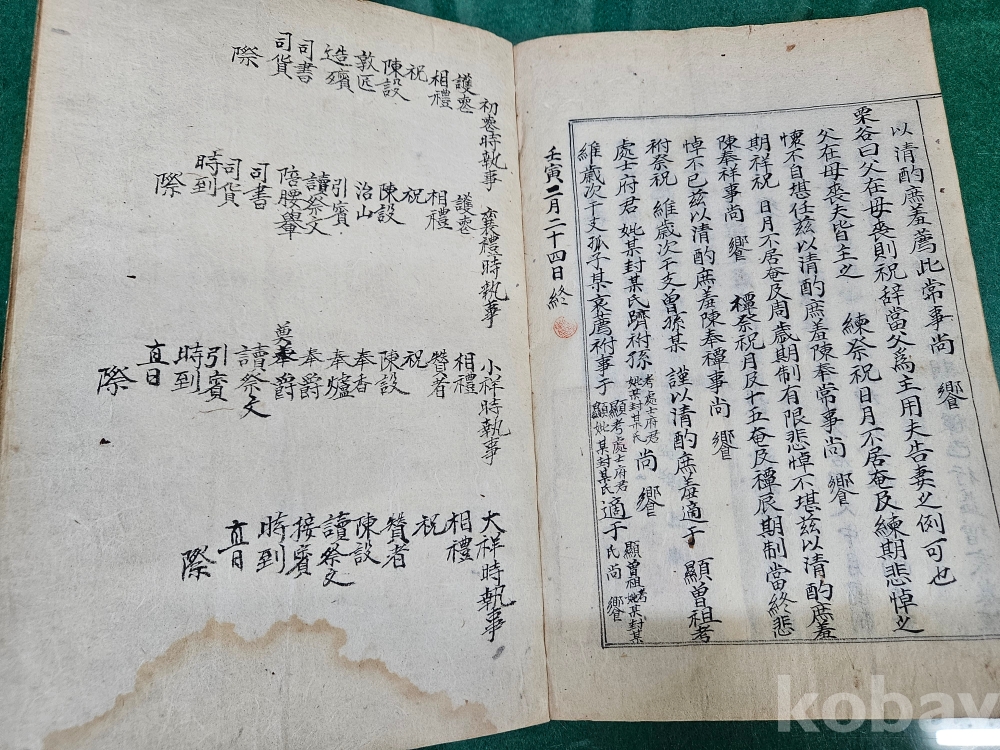 以清酌庶羞薦此常事尚 饗
栗谷曰父在母喪則祝辞當父爲主用夫告妻之例可也
父在母喪夫皆主之 練祭祝日月不居奄及練期悲悼之
懷不自堪任玆以清酌庶羞陳奉常事尚 饗
期祥祝 日月不居奄及周歲期制有限悲悼不堪玆以清酌庶羞
陳奉祥事尚 饗 禫祭祝月及十五奄及禫辰期制當終悲
悼不已玆以清酌庶羞陳奉禫事尚 饗
祔祭祝 維歲次干支曾孫某 謹以清酌庶羞適于 顯曾祖考
處士府君 妣某封某氏隮祔孫 考處士府君 妣某封某氏 尚 饗
維歲次干支孤子某哀薦祔事于 顯考處士府君 顯妣某封某氏 適于 顯曾祖考 妣某封某氏 尚 饗
壬寅二月二十四日終
初喪時執事
護喪
相禮
祝
陳設
敦匠
造殯
司書
司貨
際
襄禮時執事
護喪
相禮
祝
陳設
治山
引賓
讀祭文
陪腰轝
司書
司貨
時到
際
小祥時執事
相禮
贊者
祝
陳設
奉香
奉爐
奉爵
奠爵
讀祭文
引賓
時到
直日
際
大祥時執事
相禮
祝
贊者
陳設
讀祭文
接賓
時到
直日
際
kobay